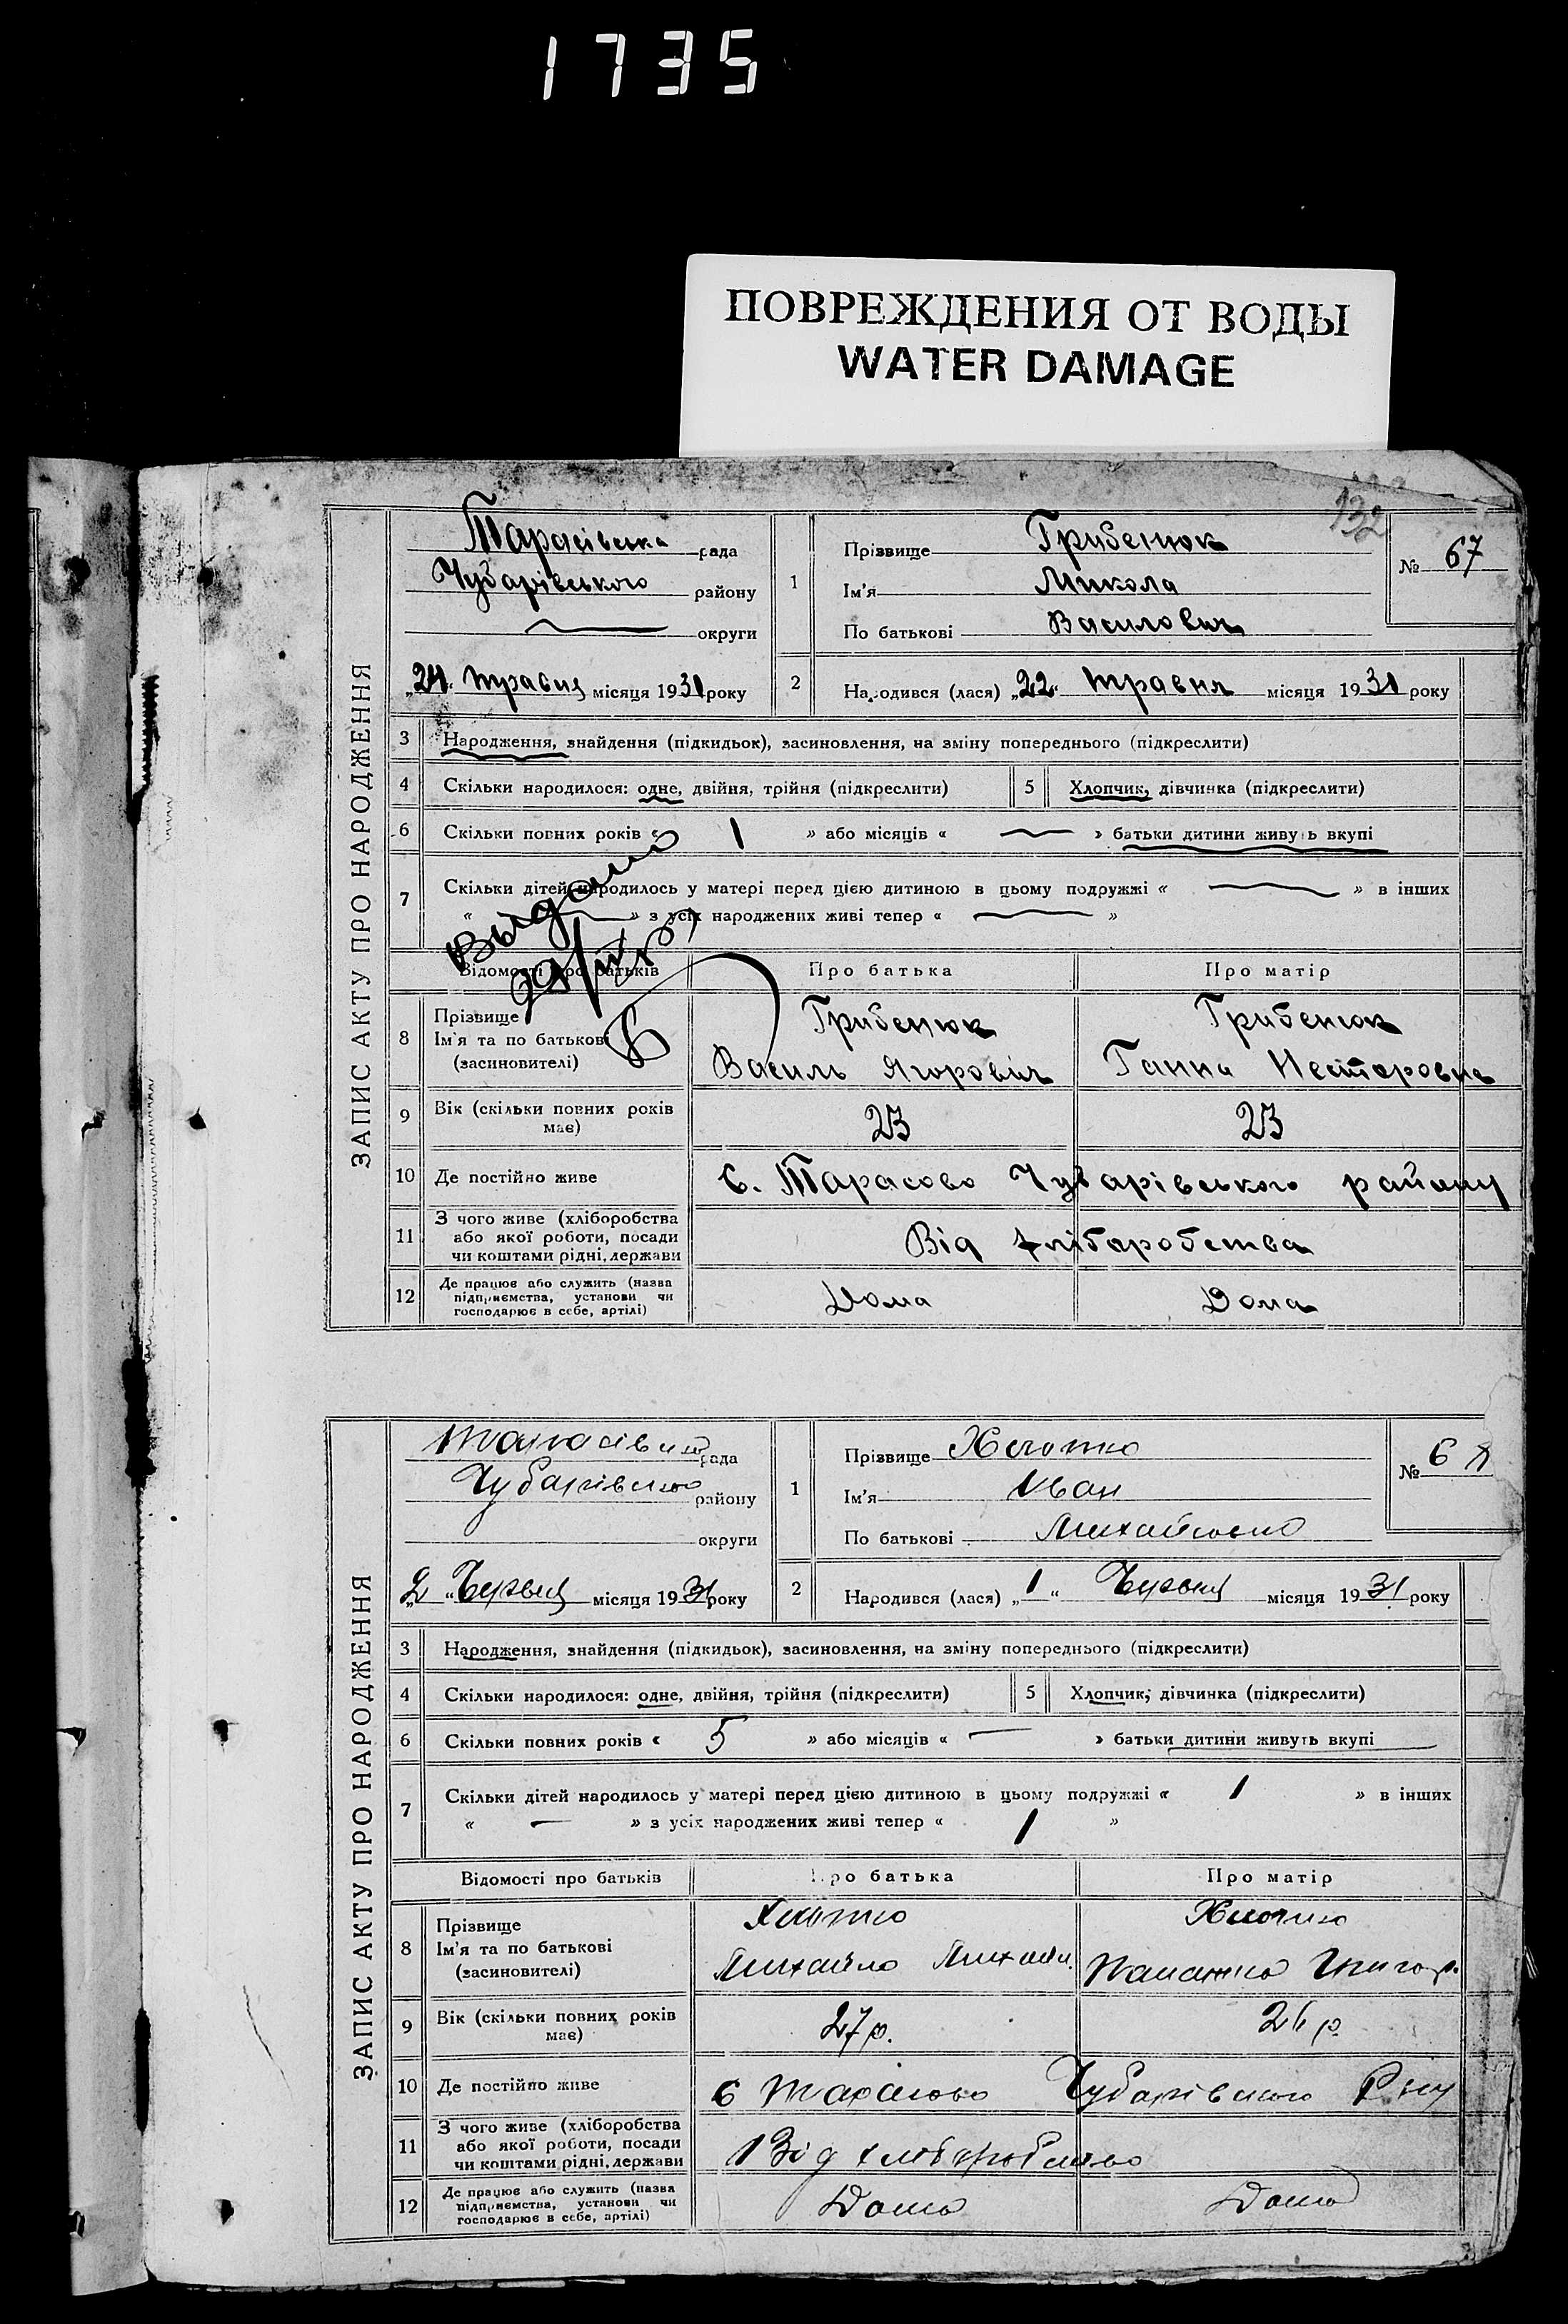 1735
ПОВРЕЖДЕНИЯ ОТ ВОДЫ
WATER DAMAGE
132
ЗАПИС АКТУ ПРО НАРОДЖЕННЯ
Тарасівська рада
Чубарівського району
округи
„24“ травня місяця 1931 року
1
Прізвище Грибенюк
Ім'я Микола
По батькові Василович
№ 67
2 Народився (лася) „22“ травня місяця 1931 року
3 Народження, знайдення (підкидьок), засиновлення, на зміну попереднього (підкреслити)
4 Скільки народилося: одне, двійня, трійня (підкреслити) 5 Хлопчик, дівчинка (підкреслити)
6 Скільки повних років « 1 » або місяців « — » батьки дитини живуть вкупі
7 Скільки дітей народилось у матері перед цією дитиною в цьому подружжі « — » в інших
« — » з усіх народжених живі тепер « — »
Выдано
Відомості про батьків Про батька Про матір
8 Прізвище
Ім'я та по батькові
(засиновителі)
Грибенюк Грибенюк
Василь Ягорович Ганна Несторовна
9 Вік (скільки повних років має) 23 23
10 Де постійно живе с. Тарасово Чубарівського району
11 З чого живе (хліборобства
або якої роботи, посади
чи коштами рідні, держави
Від хліборобства
12 Де працює або служить (назва
підприємства, установи чи
господарює в себе, артілі)
Дома Дома
ЗАПИС АКТУ ПРО НАРОДЖЕННЯ
рада
району
округи
„2“ Червня місяця 1931 року
1
Прізвище
Ім'я Іван
По батькові
№ 68
2 Народився (лася) „1“ Червня місяця 1931 року
3 Народження, знайдення (підкидьок), засиновлення, на зміну попереднього (підкреслити)
4 Скільки народилося: одне, двійня, трійня (підкреслити) 5 Хлопчик, дівчинка (підкреслити)
6 Скільки повних років « 5 » або місяців « — » батьки дитини живуть вкупі
7 Скільки дітей народилось у матері перед цією дитиною в цьому подружжі « 1 » в інших
« — » з усіх народжених живі тепер « 1 »
Відомості про батьків Про батька Про матір
8 Прізвище
Ім'я та по батькові
(засиновителі)
Михайло Григор.
9 Вік (скільки повних років має) 27 р. 26 р.
10 Де постійно живе с Тарасово
11 З чого живе (хліборобства
або якої роботи, посади
чи коштами рідні, держави
Від
12 Де працює або служить (назва
підприємства, установи чи
господарює в себе, артілі)
Дома Дома